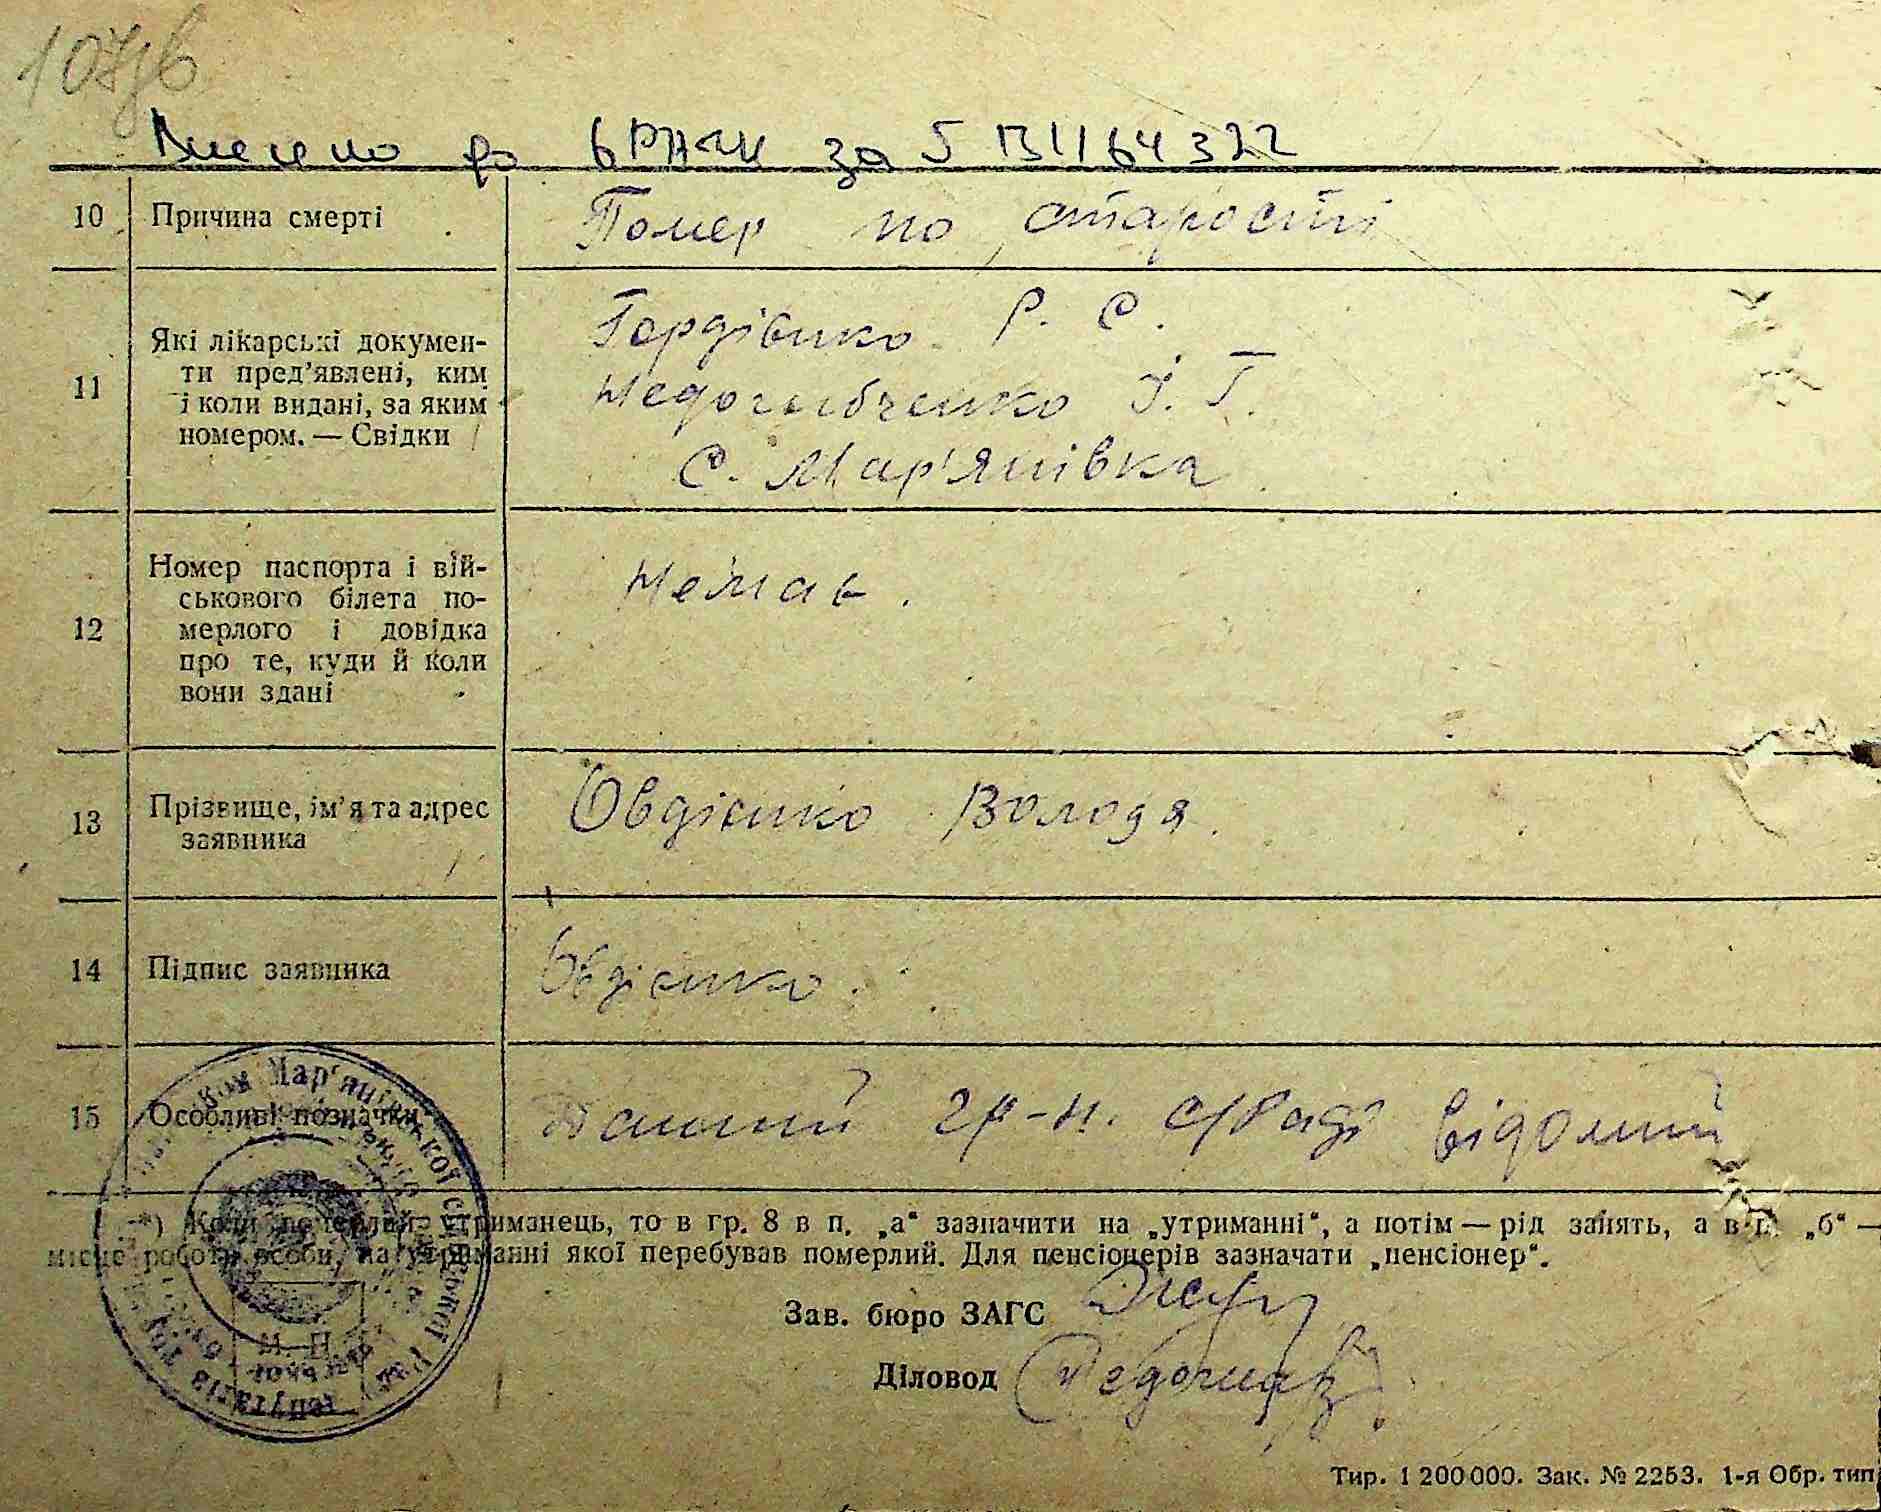 107зв
Внесено до ЄРНАЦ за § 131164322
10 Причина смерті Помер по старості
11 Які лікарські докумен-
ти пред'явлені, ким
і коли видані, за яким
номером. — Свідки
Гордієнко Р. С.
І. Г.
С. Мар'янівка
12 Номер паспорта і вій-
ськового білета по-
мерлого і довідка
про те, куди й коли
вони здані
Немає.
13 Прізвище, ім'я та адрес
заявника
Овдієнко Володя.
14 Підпис заявника Овдієнко.
15 Особливі позначки Даний гр-н. с/Раді відомий
*) Коли померлий утриманець, то в гр. 8 в п. „а“ зазначити на „утриманні“, а потім — рід занять, а в п. „б“ —
місце роботи особи, на утриманні якої перебував померлий. Для пенсіонерів зазначати „пенсіонер“.
Зав. бюро ЗАГС
Діловод
М. П.
Мар'янівської сільської Ради депутатів
Тир. 1 200 000. Зак. № 2253. 1-я Обр. тип